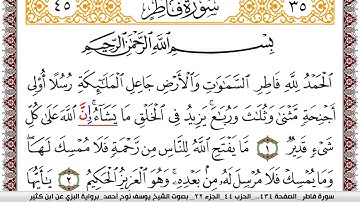 ٣٥ سورة فاطر ٤٥
بِسْمِ اللَّهِ الرَّحْمَٰنِ الرَّحِيمِ
الْحَمْدُ لِلَّهِ فَاطِرِ السَّمَٰوَٰتِ وَالْأَرْضِ جَاعِلِ الْمَلَٰٓئِكَةِ رُسُلًا أُو۟لِىٓ
أَجْنِحَةٍ مَّثْنَىٰ وَثُلَٰثَ وَرُبَٰعَ يَزِيدُ فِى الْخَلْقِ مَا يَشَآءُ إِنَّ اللَّهَ عَلَىٰ كُلِّ
شَىْءٍ قَدِيرٌ ١ مَّا يَفْتَحِ اللَّهُ لِلنَّاسِ مِن رَّحْمَةٍ فَلَا مُمْسِكَ لَهَا
وَمَا يُمْسِكْ فَلَا مُرْسِلَ لَهُۥ مِنۢ بَعْدِهِۦ وَهُوَ الْعَزِيزُ الْحَكِيمُ ٢ يَٰٓأَيُّهَا
سورة فاطر _ الصفحة ٤٣٤ _ الحزب ٤٤ _ الجزء ٢٢ _ بصوت الشيخ يوسف نوح احمد _ برواية البزي عن ابن كثير